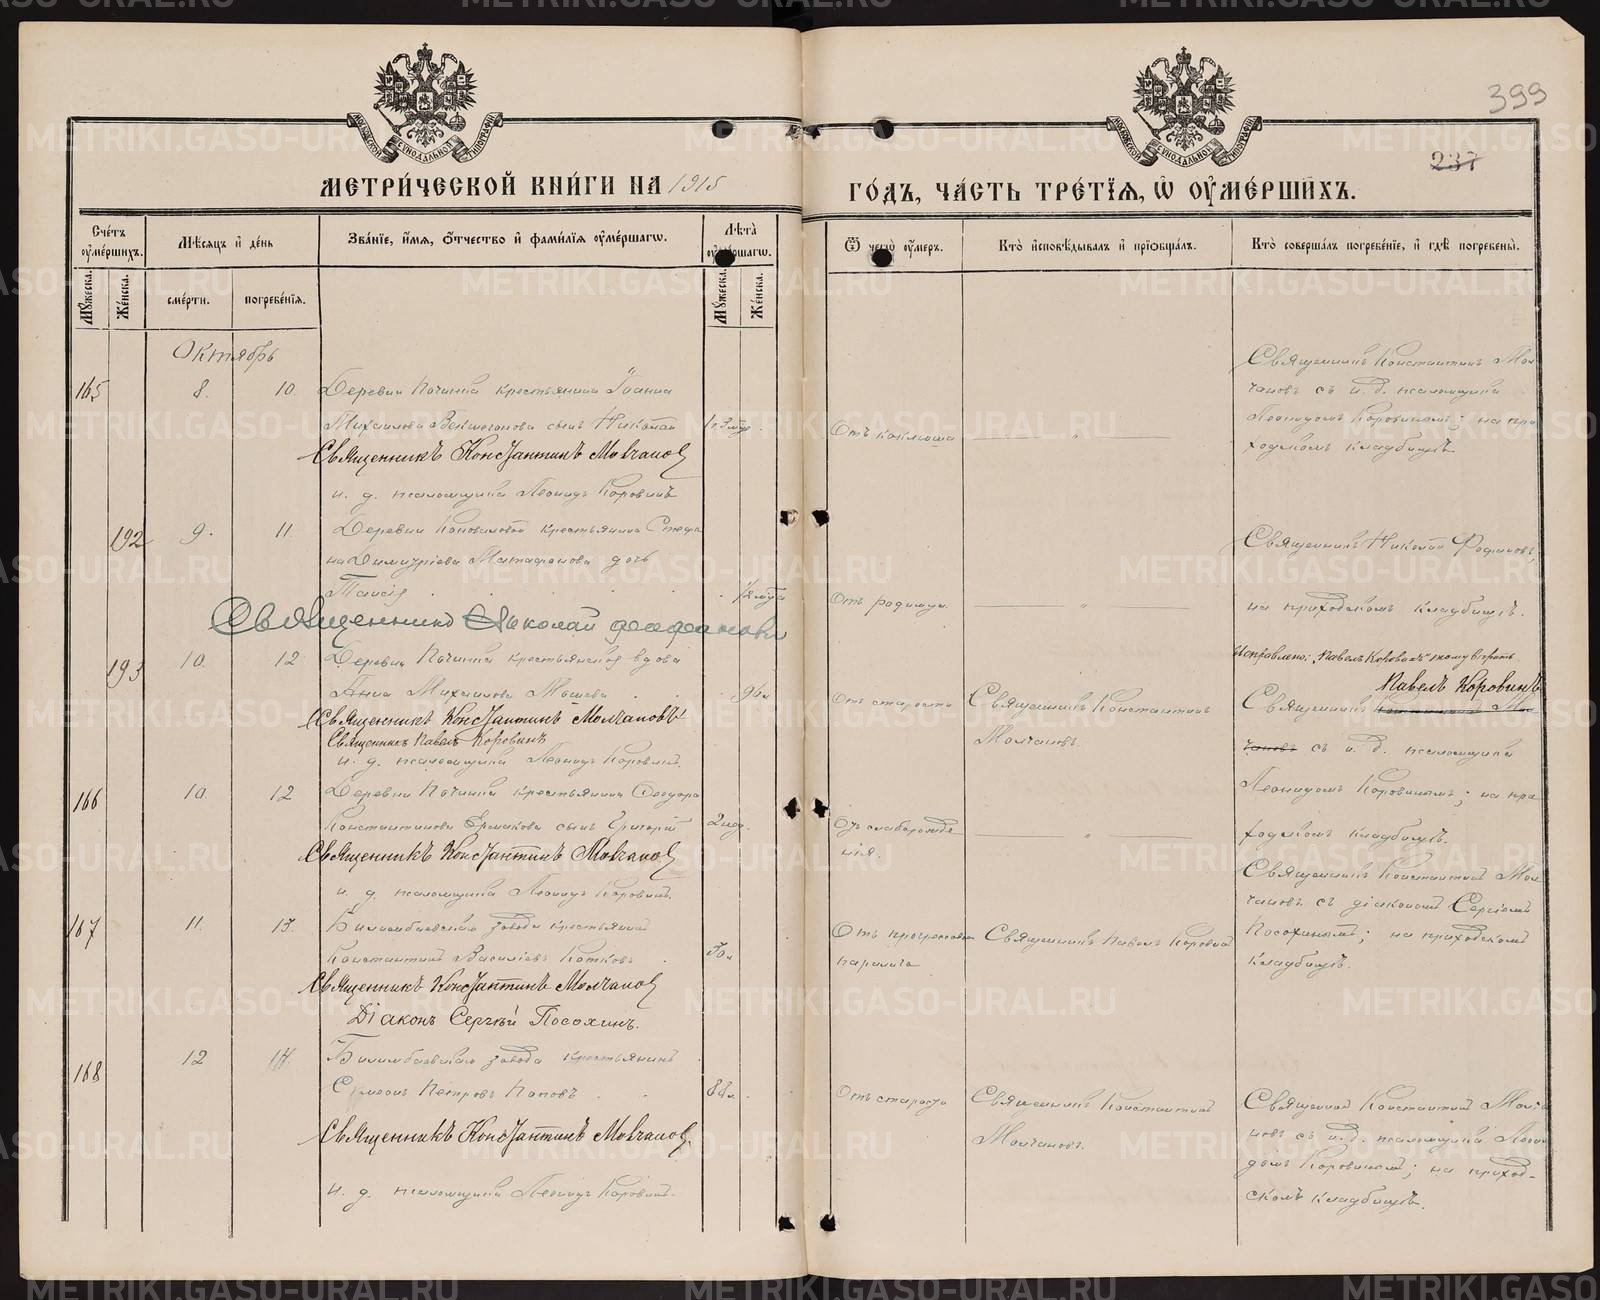 399
237
МЕТРИ́ЧЕСКОЙ КНИ́ГИ НА 1915
ГО́ДЪ, ЧА́СТЬ ТРЕ́ТІѦ, Ѡ ОУМЕ́РШИХЪ.
Сче́тъ оуме́ршихъ.
Мꙋжеска.
Же́нска.
Мѣ́сяцъ и де́нь
сме́рти.
погребе́нїѧ.
Зва́нїе, и́мѧ, ѻ́тчество и фами́лїѧ оуме́ршагѡ.
Лѣта̀ оуме́ршагѡ.
Мꙋжеска.
Же́нска.
Ѿ чегѡ̀ оу́меръ.
Кто̀ исповѣ́дывалъ и прїѻбща́лъ.
Кто̀ соверша́лъ погребе́нїе, и гдѣ̀ погребены̀.
Октябрь
165
8.
10.
Деревни Починка крестьянина Іоанна
Михаилова сынъ Николай
Священникъ Константинъ Молчановъ
и. д. псаломщика Леонидъ Коровинъ
Отъ коклюша
Священникъ Константинъ Мол-
чановъ съ и. д. псаломщика
Леонидомъ Коровинымъ; на при-
ходскомъ кладбищѣ
192
9.
11.
Деревни Коноваловой крестьянина Стефа-
на Димитріева Матафонова дочь
Таисія
Священникъ Николай Феофановъ
Отъ родимца
Священникъ Николай Феофановъ
на приходскомъ кладбищѣ.
193
10.
12
Деревни Починка крестьянская вдова
Анна Михаилова
Священникъ Константинъ Молчановъ
Священникъ Павелъ Коровинъ
и. д. псаломщика Леонидъ Коровинъ.
Отъ старости
Священникъ Константинъ
Молчановъ.
Исправлено: "Павелъ Коровинъ" чему вѣрить.
Павелъ Коровинъ
Священникъ
чановъ съ и. д. псаломщика
Леонидомъ Коровинымъ; на при-
ходскомъ кладбищѣ.
166
10.
12
Деревни Починка крестьянина Ѳеодора
Константинова Ермакова сынъ Григорій
2 нед.
Священникъ Константинъ Молчановъ
и. д. псаломщика Леонидъ Коровинъ.
От слаборожде-
нія.
Священникъ Константинъ Мол-
чановъ съ діакономъ Сергіемъ
Посохинымъ; на приходскомъ
кладбищѣ.
167
11.
13.
Билимбаевскаго завода крестьянинъ
Константинъ Василіевъ Котковъ
Священникъ Константинъ Молчановъ
Діаконъ Сергѣй Посохинъ.
Отъ прогрессивн.
паралича
Священникъ Павелъ Коровинъ
168
12
14.
Билимбаевскаго завода крестьянинъ
Симеонъ Петровъ Поповъ
Священникъ Константинъ Молчановъ
и. д. псаломщика Леонидъ Коровинъ.
Отъ старости
Священникъ Константинъ
Молчановъ.
Священникъ Константинъ Молча-
новъ съ и. д. псаломщика Леони-
домъ Коровинымъ; на приход-
скомъ кладбищѣ.
METRIKI.GASO-URAL.RU